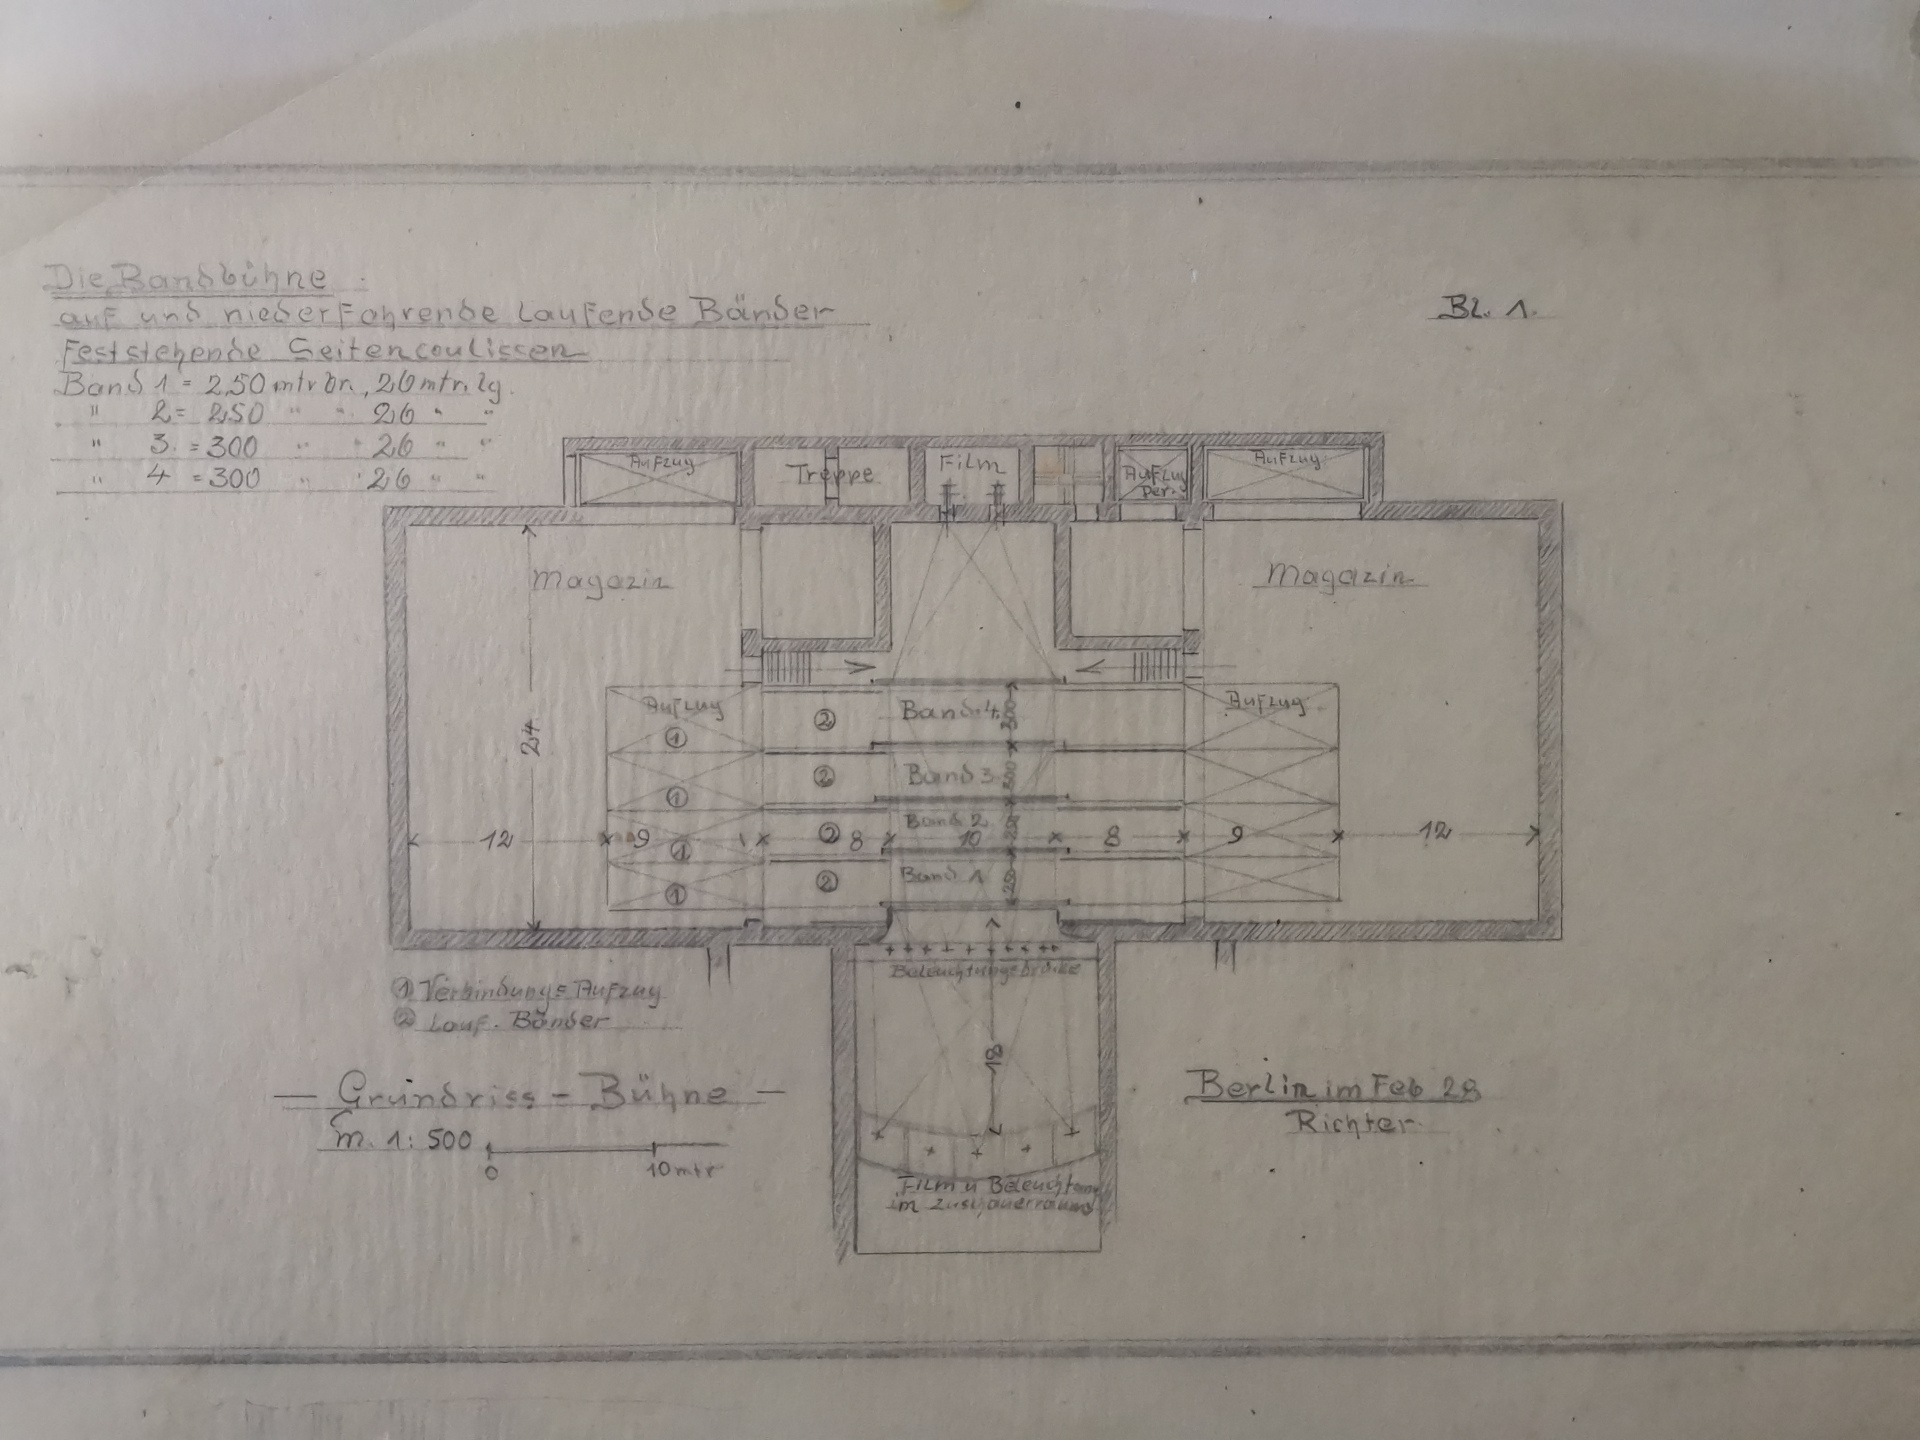 Die Bandbühne
auf und niederfahrende laufende Bänder
Feststehende Seitencoulissen
Band 1 = 2,50 mtr br., 26 mtr. lg.
" 2 = 250 " " 26 " "
" 3. = 300 " " 26 " "
" 4 = 300 " " 26 " "
Bl. 1.
Aufzug
Treppe
Film
Aufzug
per.
Aufzug
Magazin
Magazin
24
Aufzug
1
2
Band 4.
300
Aufzug
1
2
Band 3
300
12
9
1
2
8
Band 2
10
250
8
9
12
1
2
Band 1
250
Beleuchtungsbrücke
18
Film u Beleuchtung
im Zuschauerraum
1 Verbindungs=Aufzug
2 Lauf. Bänder
— Grundriss - Bühne —
M. 1:500
0 10 mtr
Berlin im Feb 28
Richter